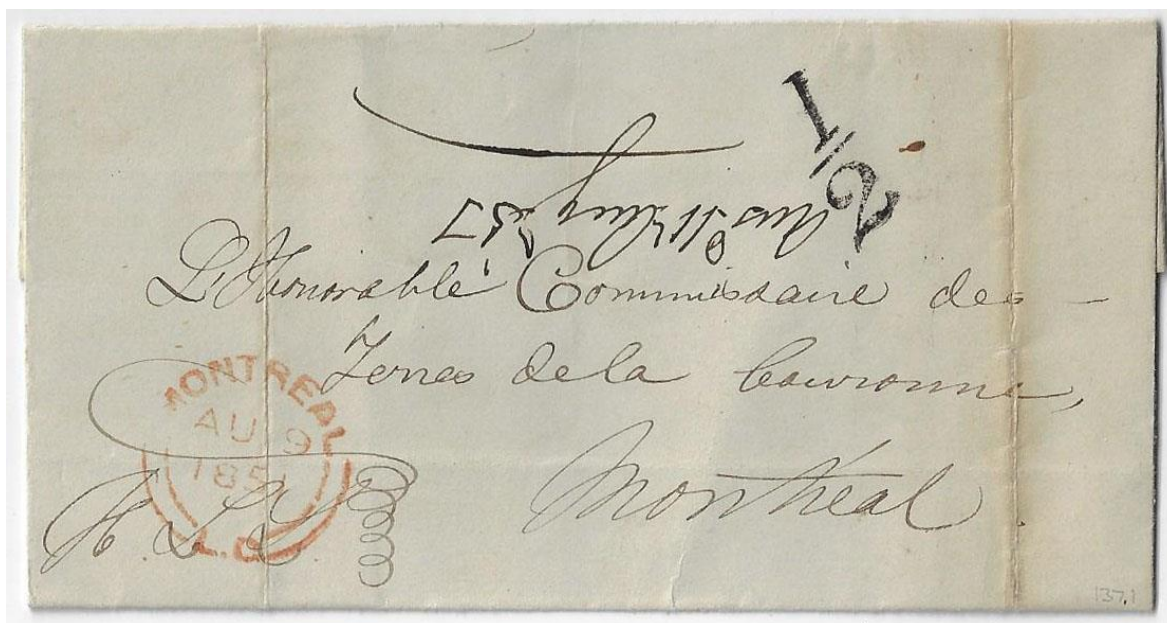 1/2
L'Honorable Commissaire des
Terres de la Couronne,
Montréal
MONTREAL
AU 9
185
L.C
137.1